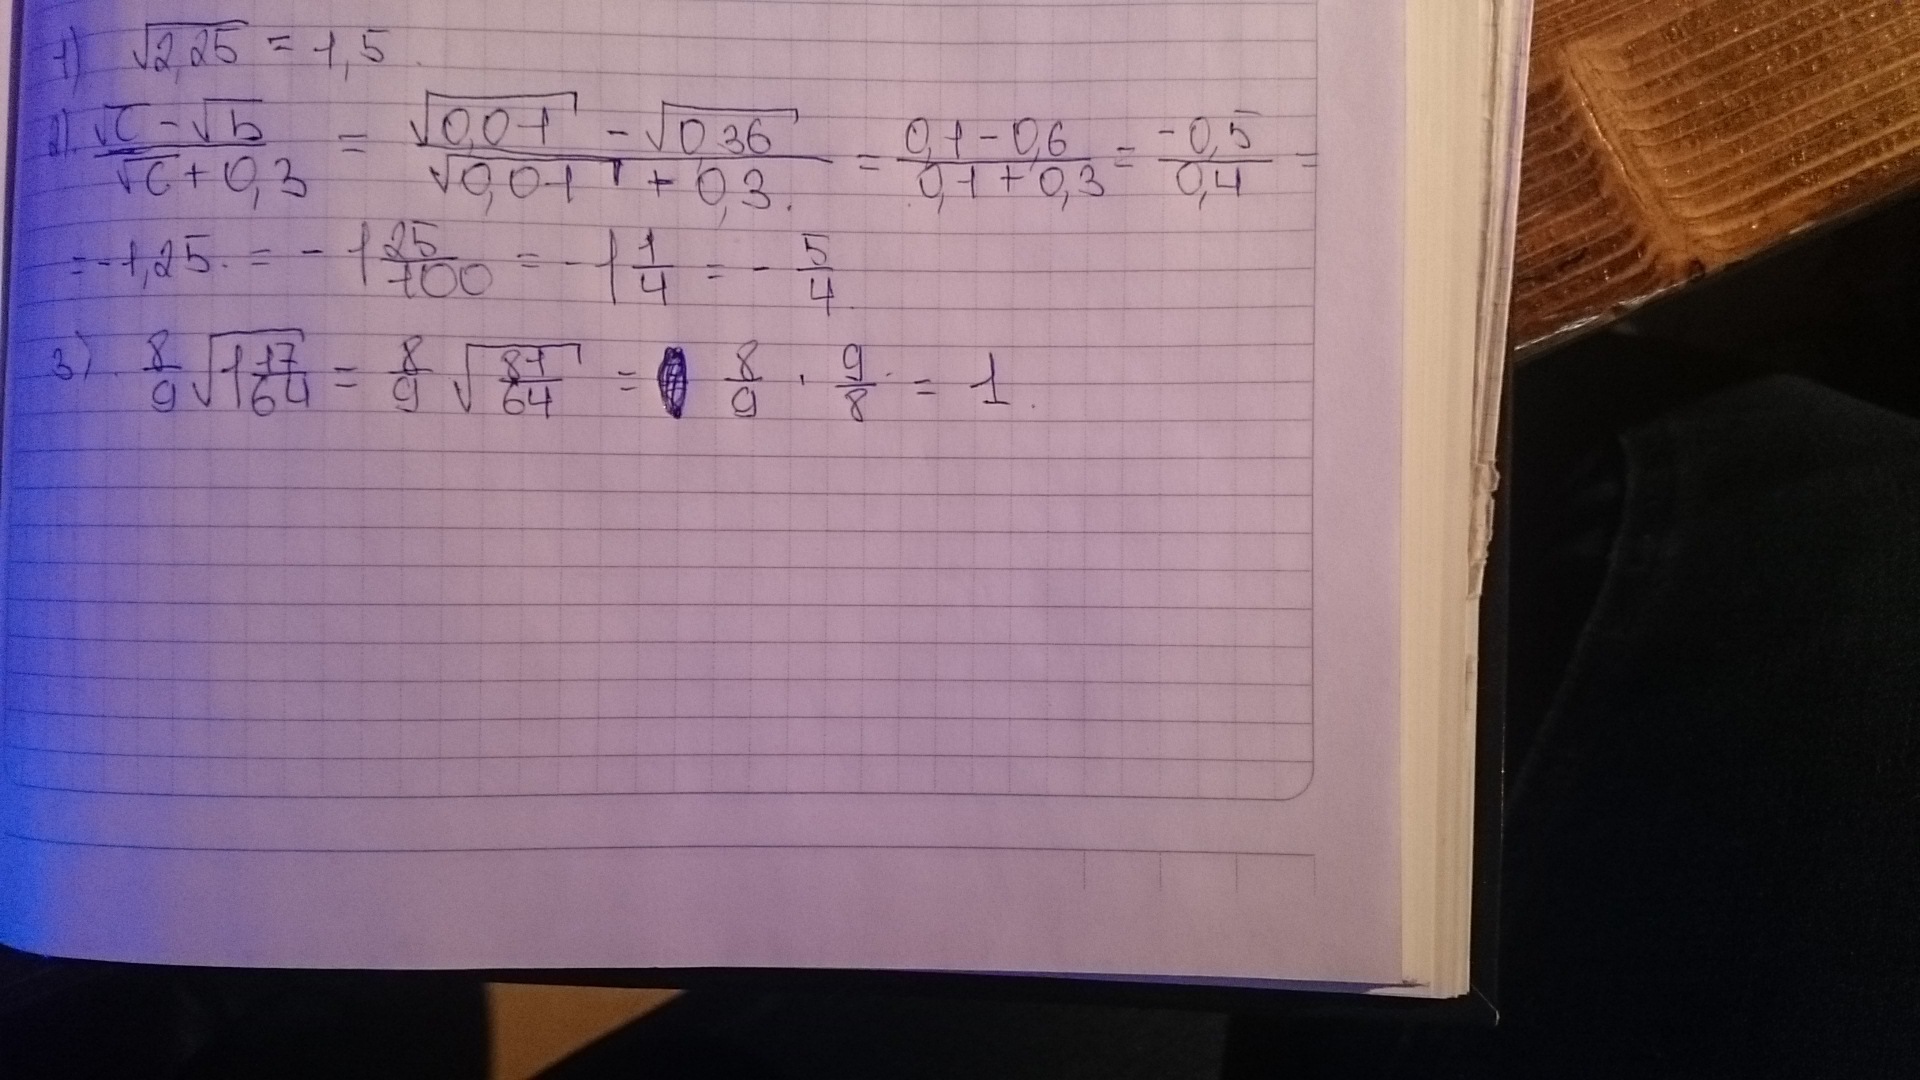 1) √2,25 = 1,5.
2). (√c - √b)/(√c + 0,3) = (√0,01 - √0,36)/(√0,01 + 0,3) = (0,1 - 0,6)/(0,1 + 0,3) = -0,5/0,4 =
= -1,25. = -1 25/100 = -1 1/4 = - 5/4
3). 8/9 √(1 17/64) = 8/9 √(81/64) = 8/9 · 9/8 = 1.